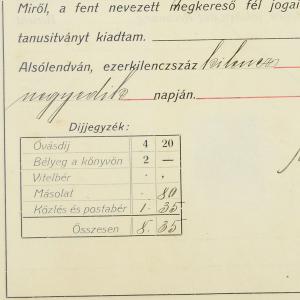 Miről, a fent nevezett megkereső fél jogai
tanusítványt kiadtam.
Alsólendván, ezerkilenczszáz kilencz
negyedik napján.
Díjjegyzék:
Óvásdíj 4 20
Bélyeg a könyvön 2 —
Vitelbér . .
Másolat . 80
Közlés és postabér 1. 35
Összesen 8. 35